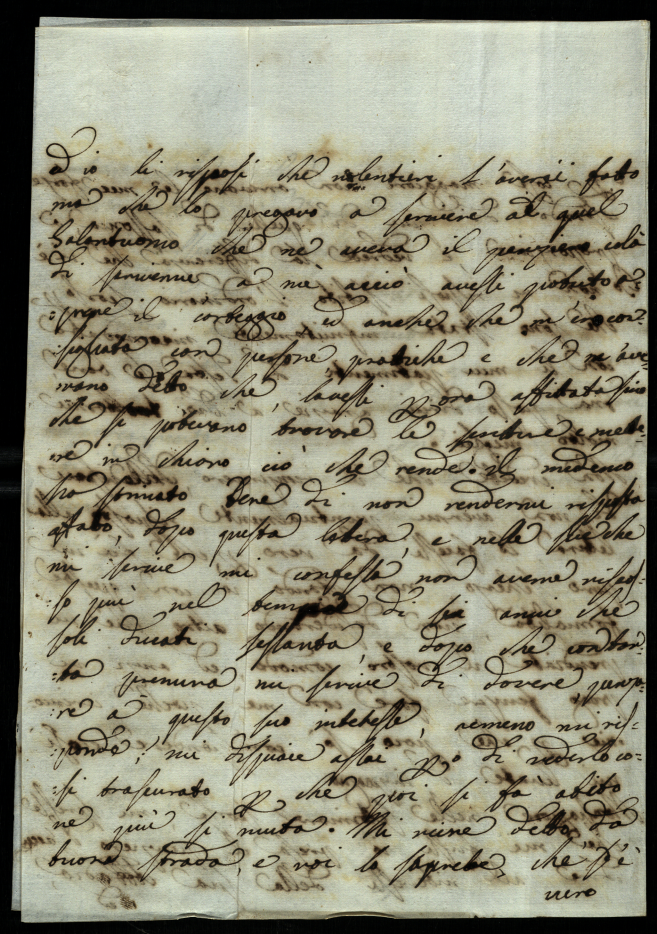 ed io li risposi che volentieri l'averei fatto
ma che lo pregavo a scrivere al quel
Galantuomo che ne aveva il pensiere colà
di scriverne a me acciò avessi potuto a=
:prire il carteggio ed anche che m'ero con=
:sigliata con persone pratiche e che m'ave=
vano detto che l'avessi p ora affittata sino
che si potevano trovare le scritture e mette=
re in chiaro ciò che rende. il medemo
ha stimato bene di non rendermi risposta
affatto, dopo questa lettera, e nelle sue che
mi scrive mi confessa non averne riscos=
:so più nel tempo di sei anni che
soli ducati sessanta, e dopo che con tan=
:ta premura mi scrive di dovere pensa=
:re a questo suo interesse, nemeno mi ris=
:ponde; mi dispiace assai p di vederlo co=
:si trascurato p che poi si fa abito
ne più si muta. Mi viene detto da
buona strada, e voi lo saprete, che s'è
vero